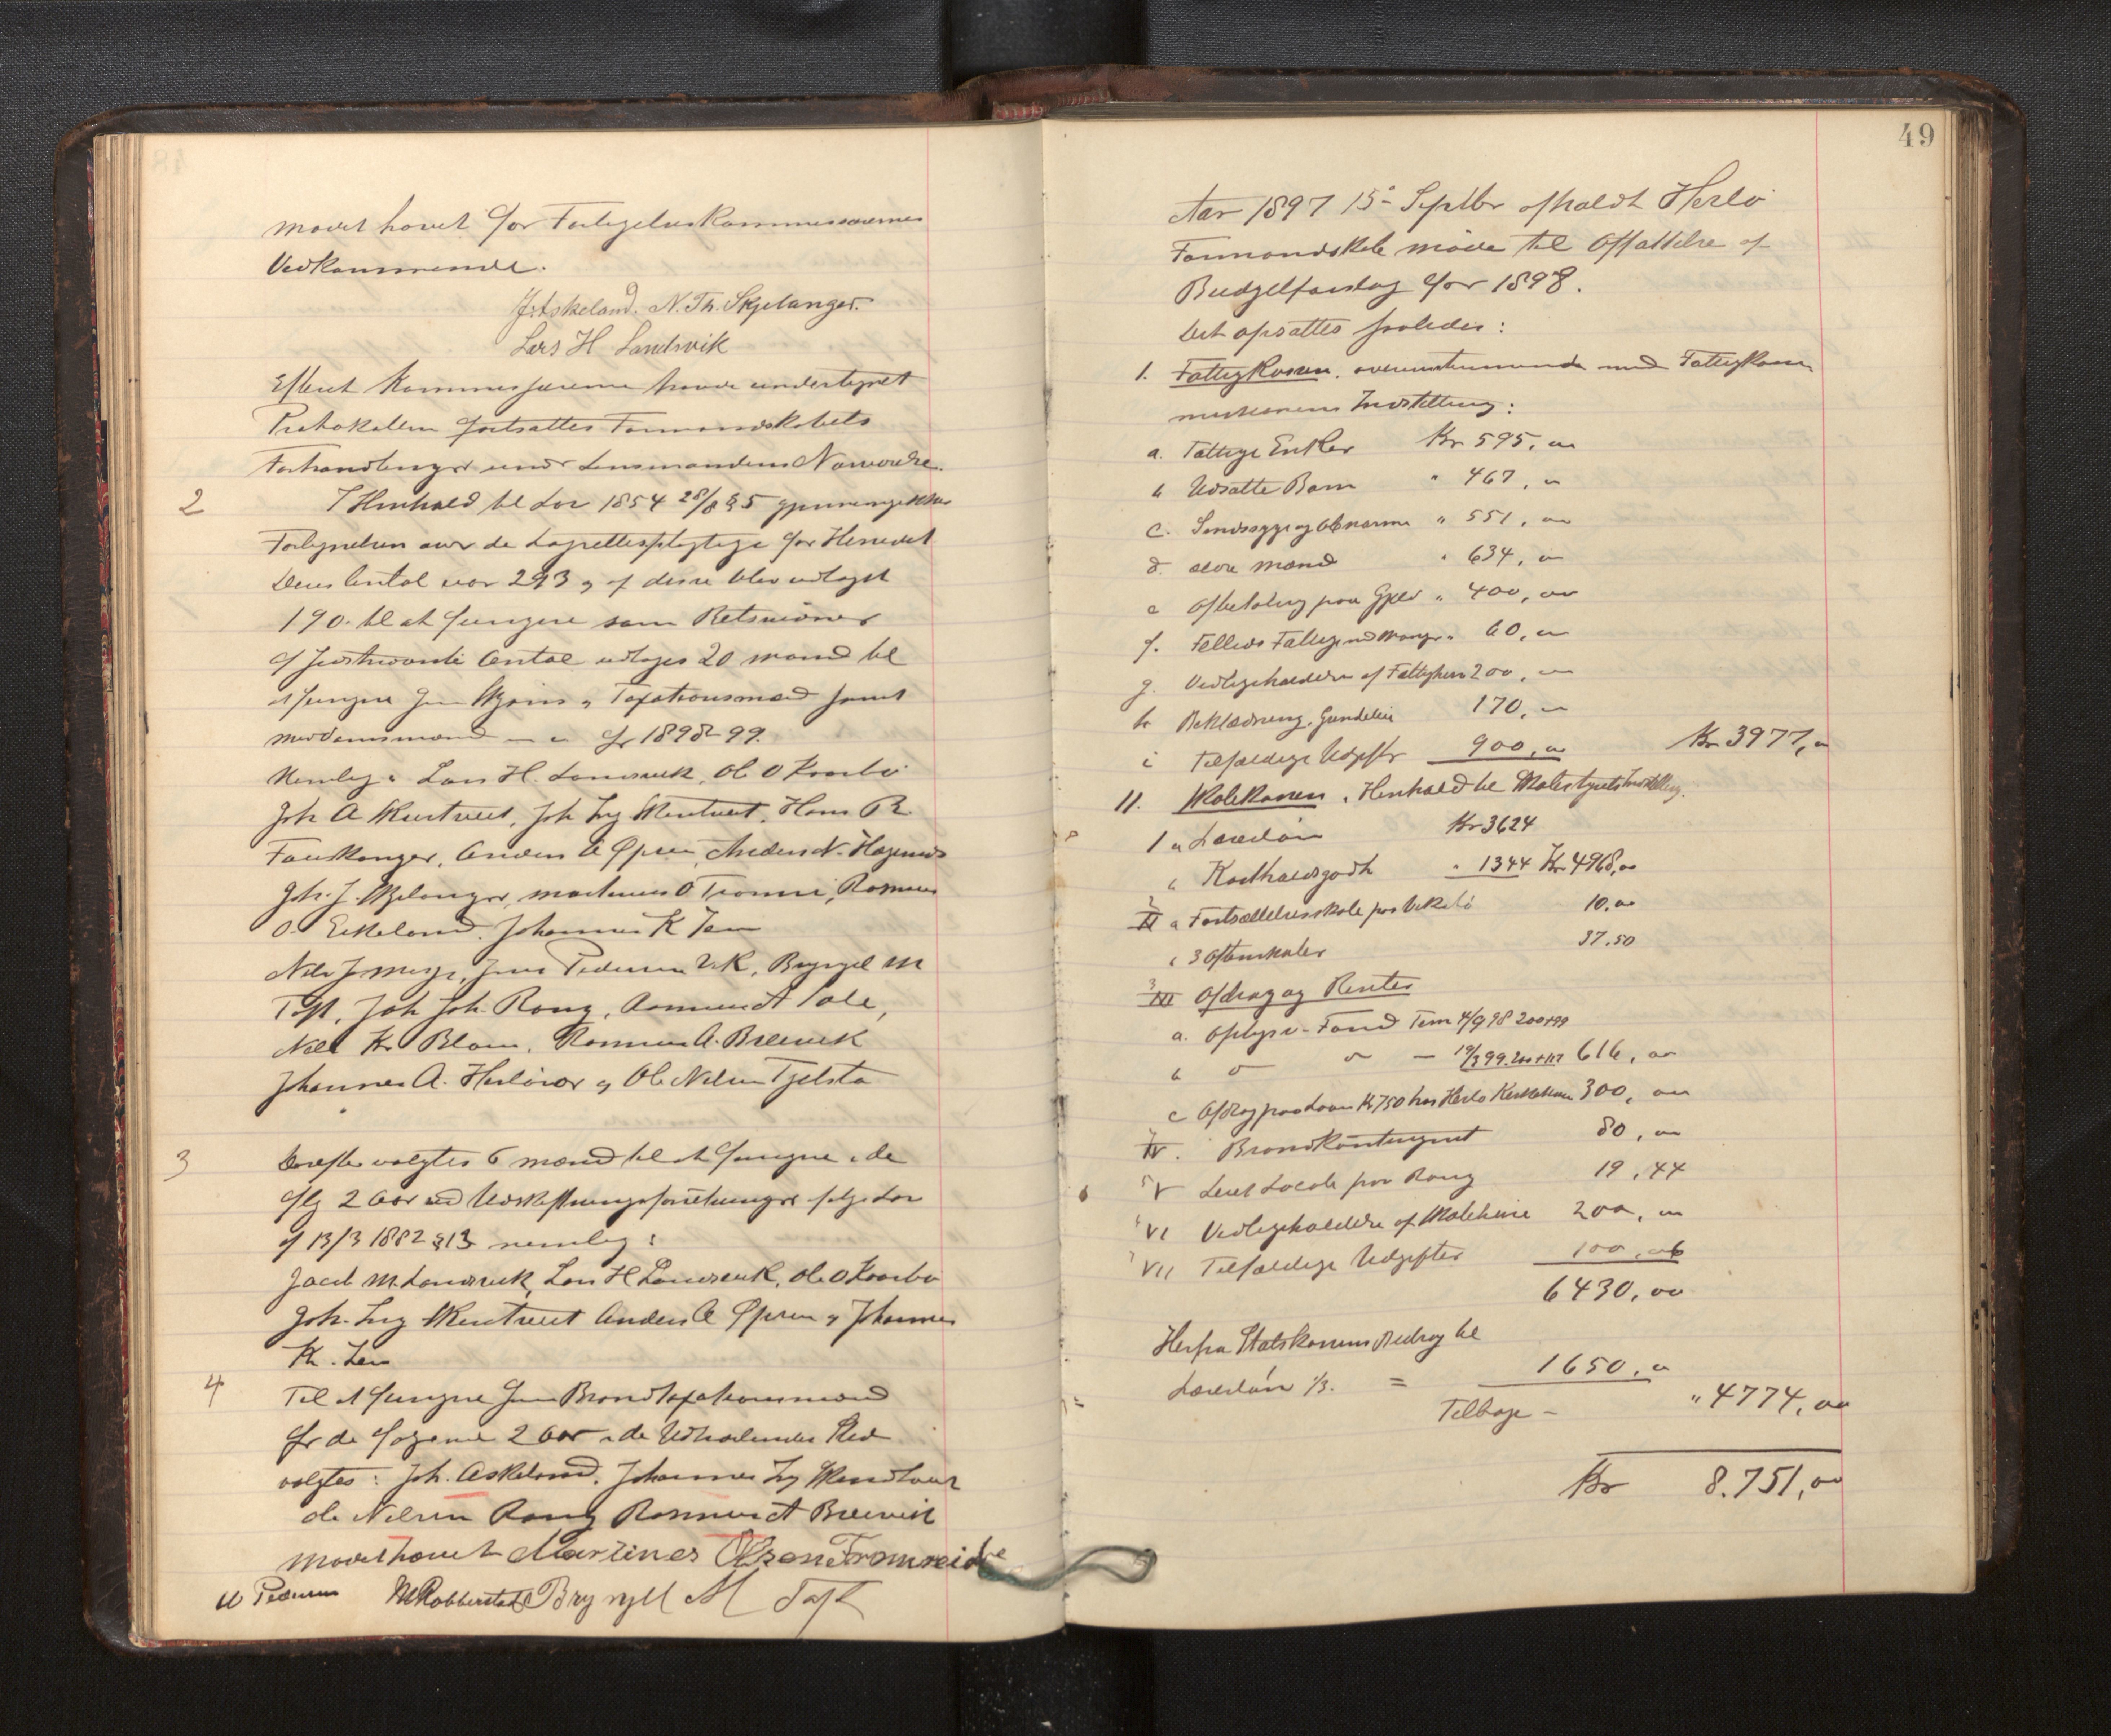 mødet hævet for Forligelseskommissærernes
Vedkommende.
J. Askeland. N. Th. Skjelanger.
Lars H Landsvik
Efterat Kommissærerne havde undertegnet
Protokollen fortsattes Formandskabets
Forhandlinger under Lensmandens Nærværelse.
2 I Henhold til Lov 1854 28/8 § 5 gjennemgikkes
Fortegnelsen over de Lagrettespligtige for Herredet
Deres Antal var 293 og af disse blev udtaget
190 til at fungere som Retsvidner
af forstnævnte Antal udtoges 20 mænd til
at fungere som Skjøns og Taxationsmænd samt
meddomsmænd for 1898-99.
Nemlig: Lars H. Landsvik, Ole O Krossbø
Joh A Skurtveit, Joh Ing Skurtveit, Hans R
Fauskanger, Anders A Espen, Anders N. Hagenes
Joh. J. Skjelanger, Martinus O Tromri, Rasmus
O. Eikeland, Johannes K Ten
Nils J, Jens Pedersen Vik, Brynjel M
Toft, Joh Joh. Rong, Asmund A Sole,
Nils Kr Blom, Rasmus A. Breivik
Johannes A. Herløvær og Ole Nilsen Tjelsto
3 Derefter valgtes 6 mænd til at fungere i de
flg 2 Aar ved Udskiftningsforretninger ifølge Lov
af 13/3 1882 § 13 nemlig:
Jacob M. Landsvik, Lars H Landsvik, Ole O Krossbø
Joh. Ing Skurtveit Anders A Espen og Johannes
K. Ten
4 Til at fungere som Brandtaxationsmænd
for de følgende 2 Aar i de Udtrædendes Sted
valgtes: Joh. Askeland, Johannes Ing Skurtveit
Ole Nilsen Rong Rasmus A Breivik
Mødet hævet Martines Olsen Fromreide
M Pedersen Robberstad Brynjell M Toft
49
Aar 1897 15de Septbr afholdt Herlø
Formandskab møde til Affattelse af
Budgetforslag for 1898.
Det opsattes saaledes:
1. Fattigkassen. overensstemmende med Fattigkom
missionens Indstilling:
a. Fattige Enker Kr 595,00
b Udsatte Børn " 467,00
c. Sindssyge og Abnorme " 551,00
d. ældre mænd " 634,00
e Afbetaling paa Gjæld " 400,00
f. Fælleds Fattige med Manger " 60,00
g. Vedligeholdelse af Fattighus 200,00
h Beklædning, Gundelie 170,00
i Tilfældige Udgifter 900,00 Kr 3977,00
11. Skolekassen i Henhold til Skolestyrets Indstilling.
1 a Lærerløn Kr 3624
b Kosthaldsgodtg " 1344 Kr 4968,00
2 II a Fortsættelsesskole 10,00
b 3 Aftenskoler 37.50
3 III Afdrag og Renter
a. Oplysn.-Fond Term 4/9 98 200+99
b " " — 19/3 99. 200+117 616,00
c Afdrag paa Laan Kr 750 hos Herlø Kirkekasse 300,00
IV. Brandkontingent 80,00
5 V Leiet Locale paa Rong 19,44
6 VI Vedligeholdelse af Skolehuse 200,00
7 VII Tilfældige Udgifter 100,06
6430,00
Herfra Statskassens Bidrag til
Lærerløn 1/3. = 1650,00
Tilbage - " 4774,00
Kr 8.751,00